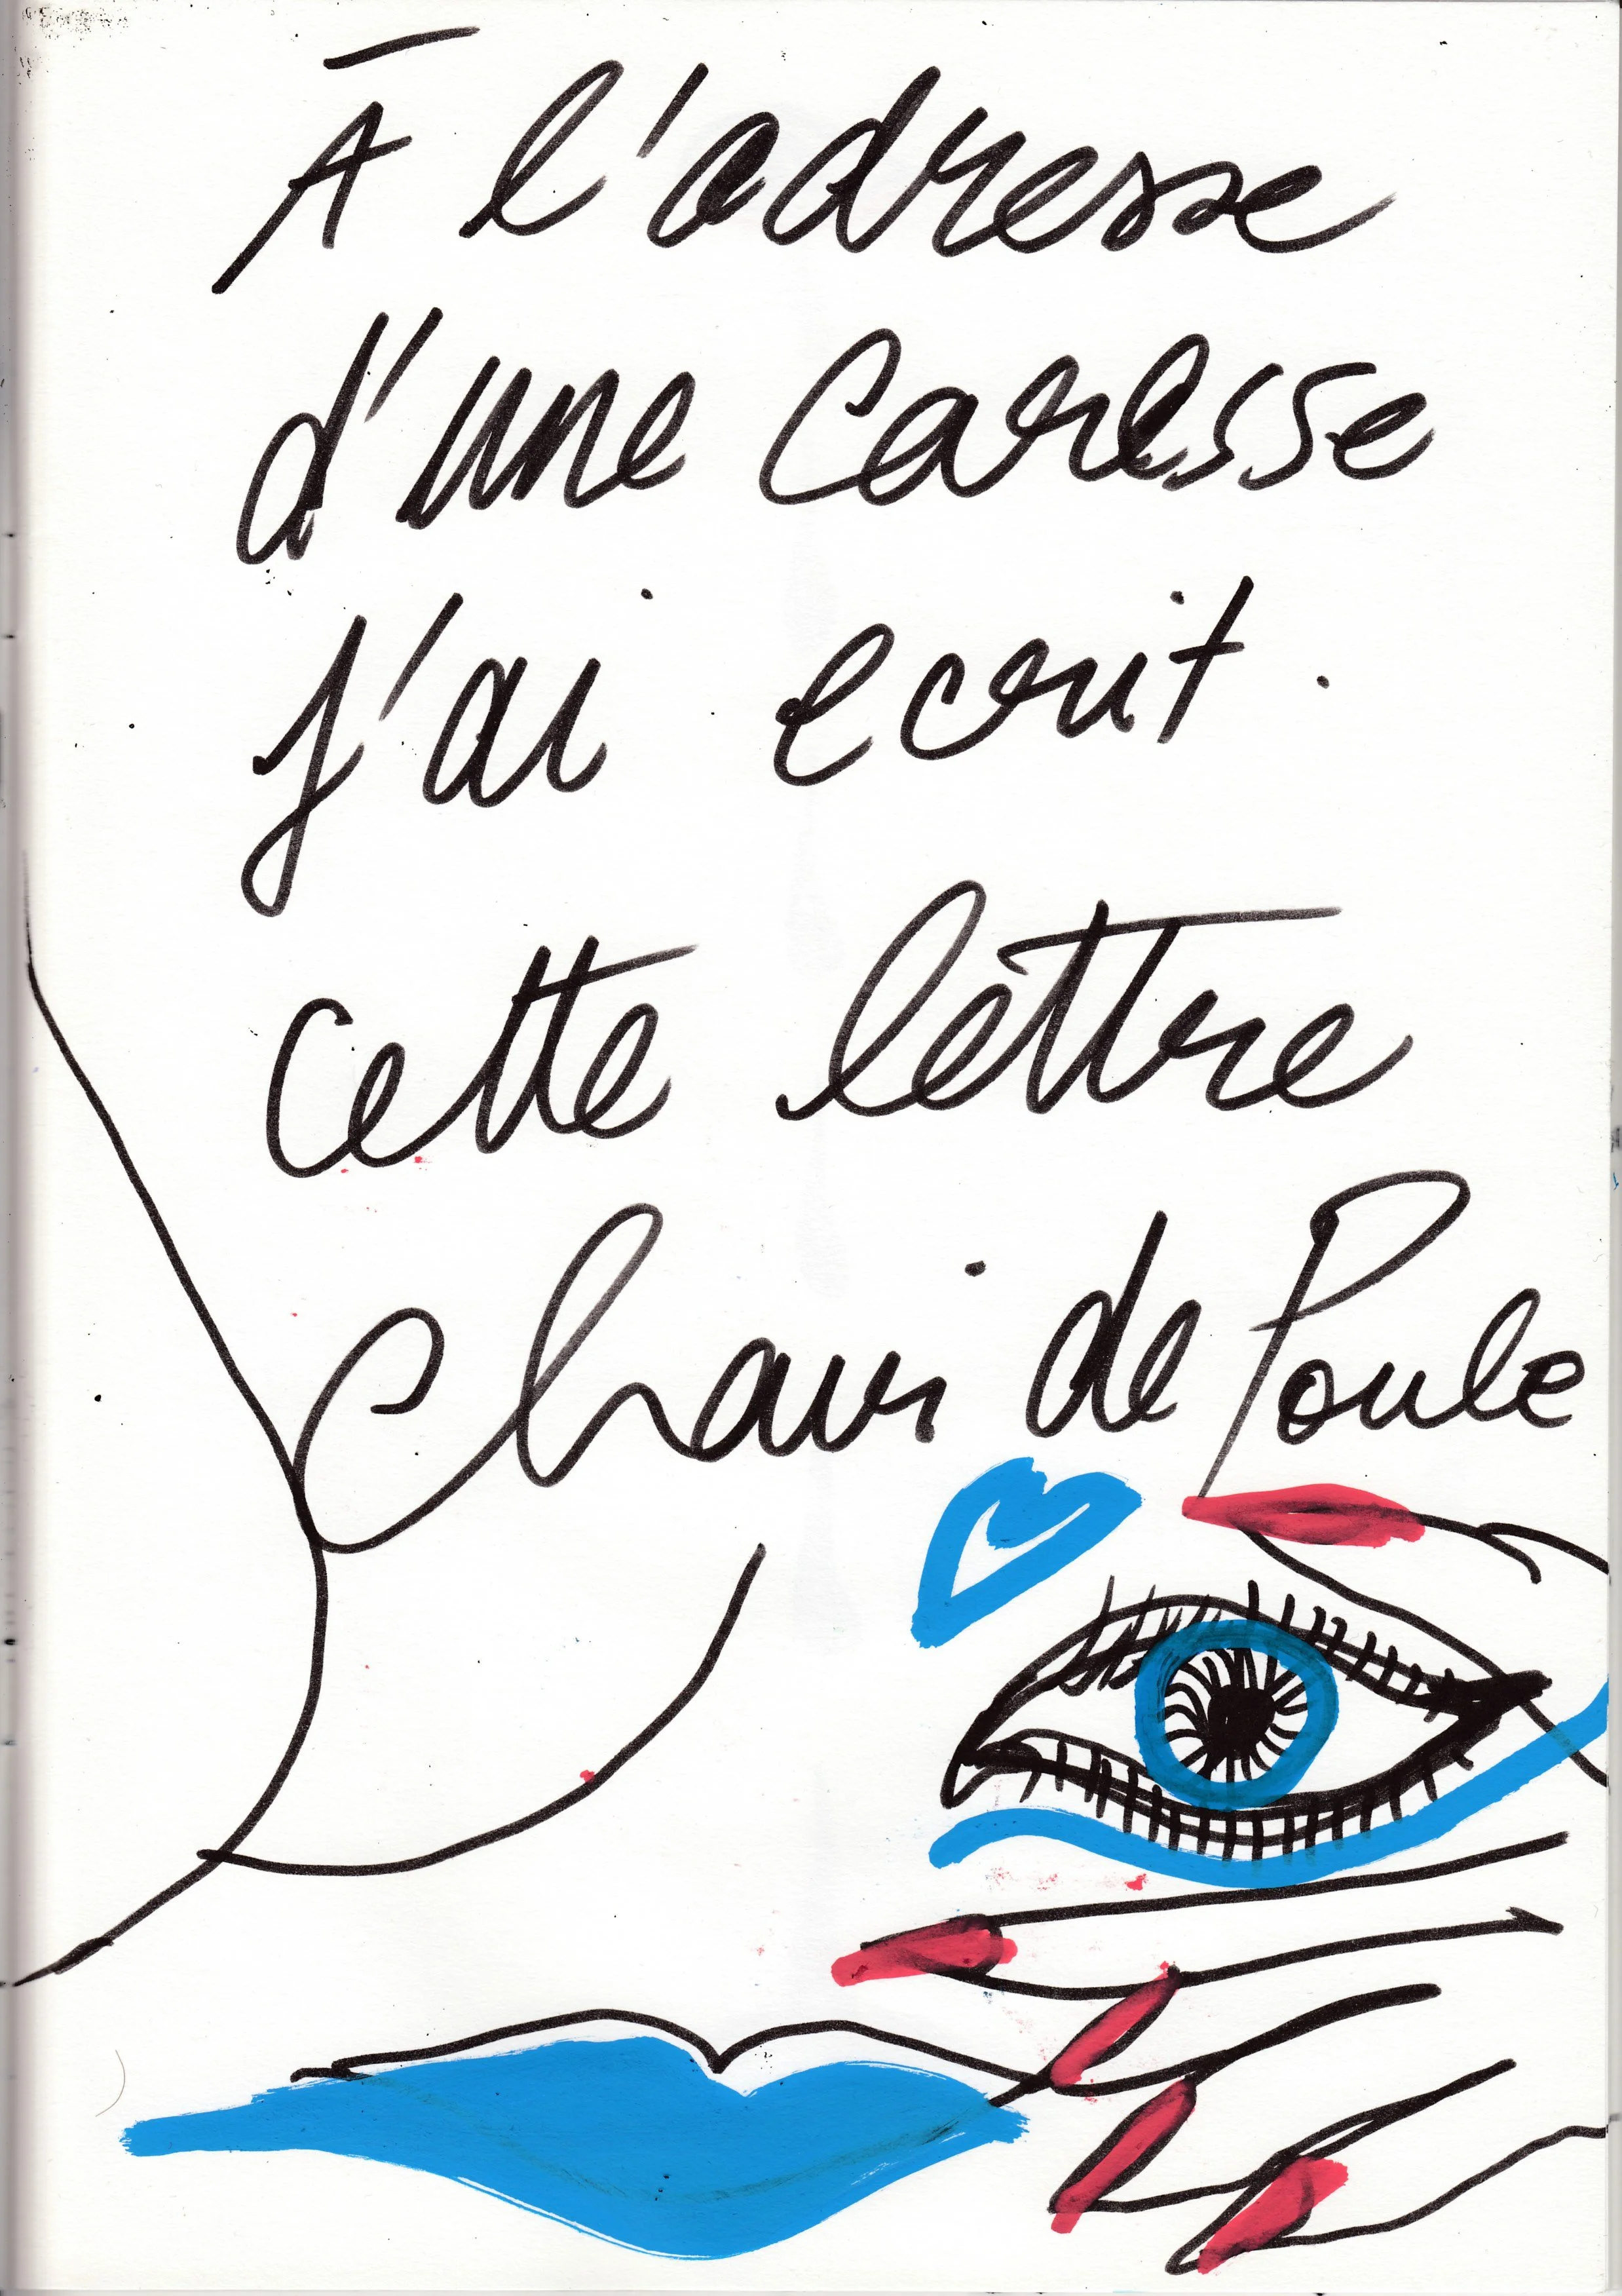 À l'adresse
d'une caresse
j'ai ecrit.
cette lettre
Chair de Poule